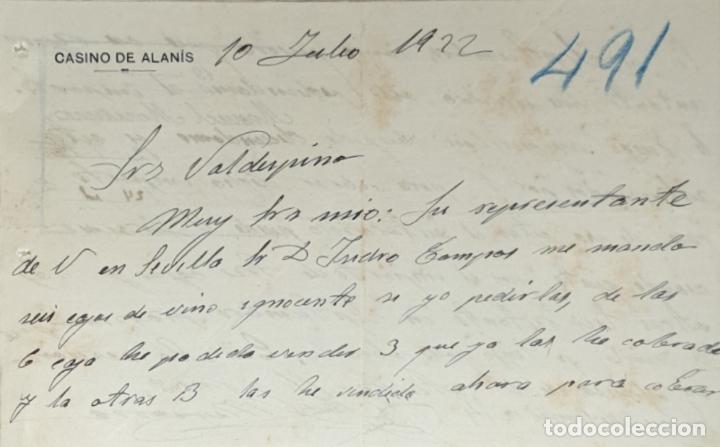 CASINO DE ALANÍS 10 Julio 1922 491
Srs Valdespino
Muy Srs mio: Su representante
de V en Sevilla Sr D Isidro Campos me mando
seis cajas de vino ignocente si yo pedirlas, de las
6 caja he podido vender 3 que ya las he cobrado
y la otras 3 las he vendido ahora para cobrar
todocoleccion